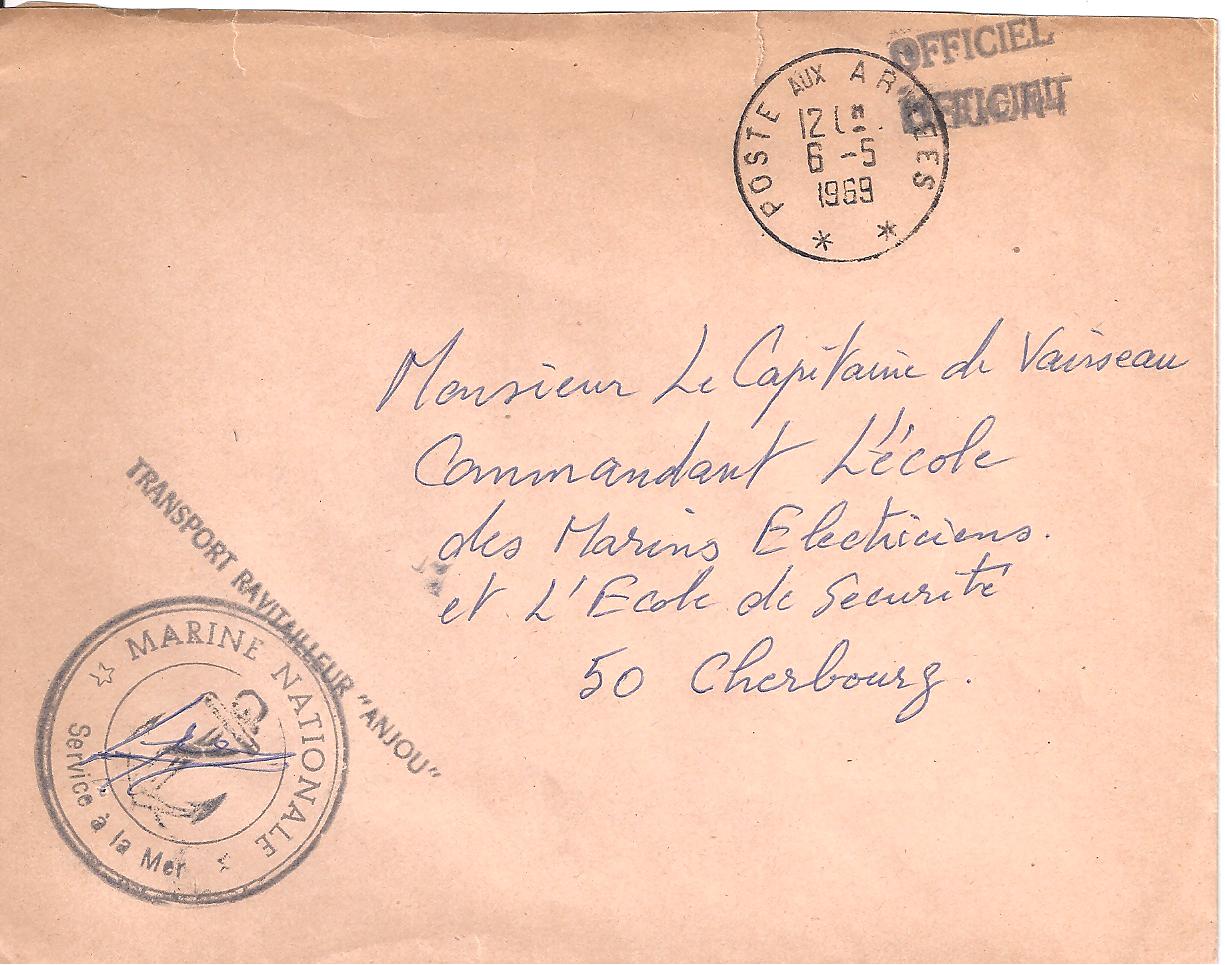 OFFICIEL
POSTE AUX ARMEES
12
6 -5
1969
Monsieur Le Capitaine de Vaisseau
Commandant L'école
des Marins Electriciens.
et L'Ecole de Securité
50 Cherbourg.
TRANSPORT RAVITAILLEUR "ANJOU"
MARINE NATIONALE
Service à la Mer